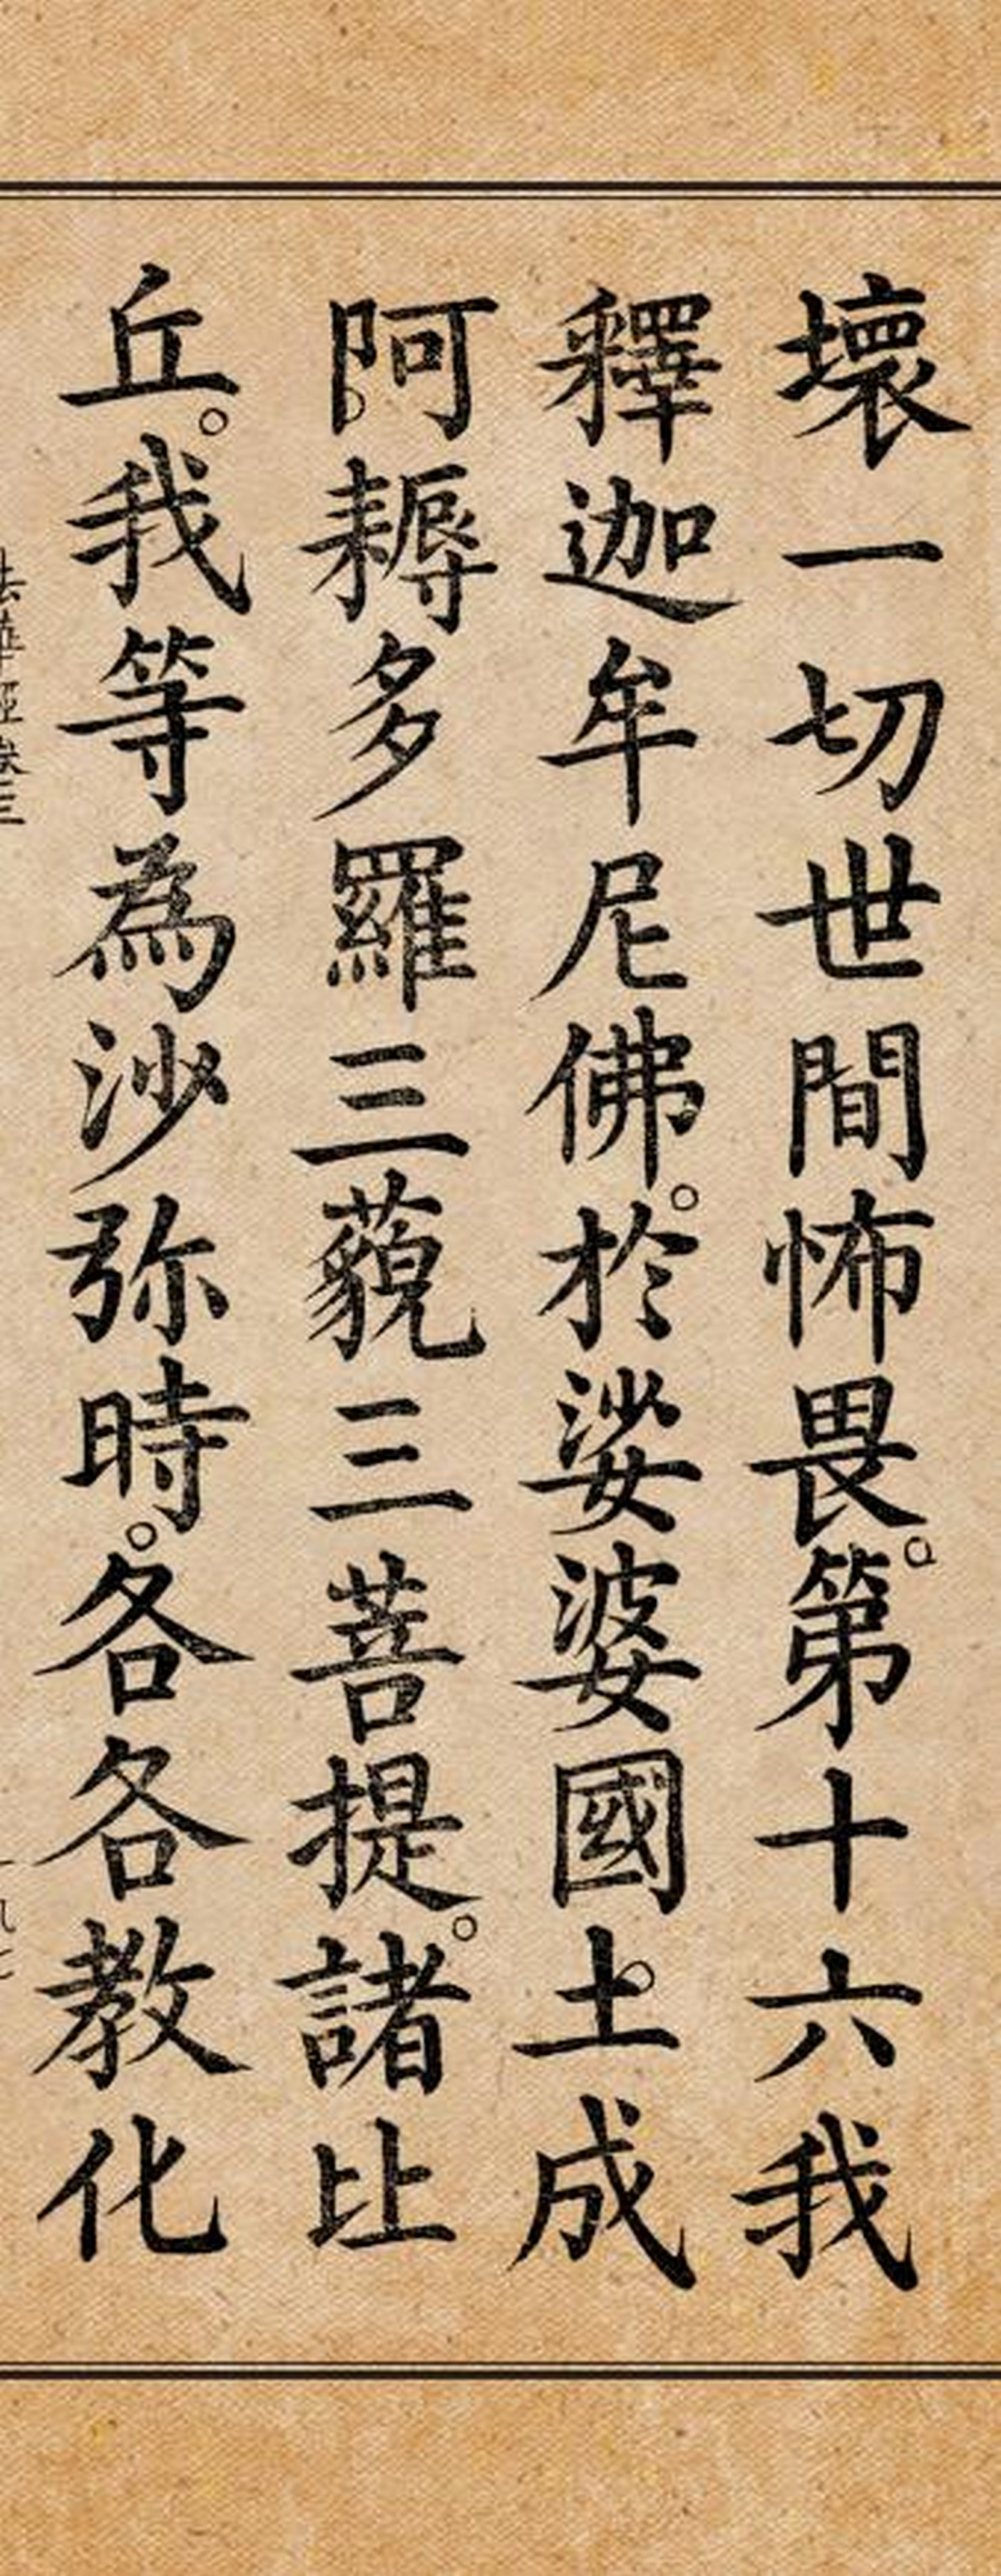 壞一切世間怖畏。第十六我
釋迦牟尼佛。於娑婆國土。成
阿耨多羅三藐三菩提。諸比
丘。我等為沙弥時。各各教化
法華經卷三